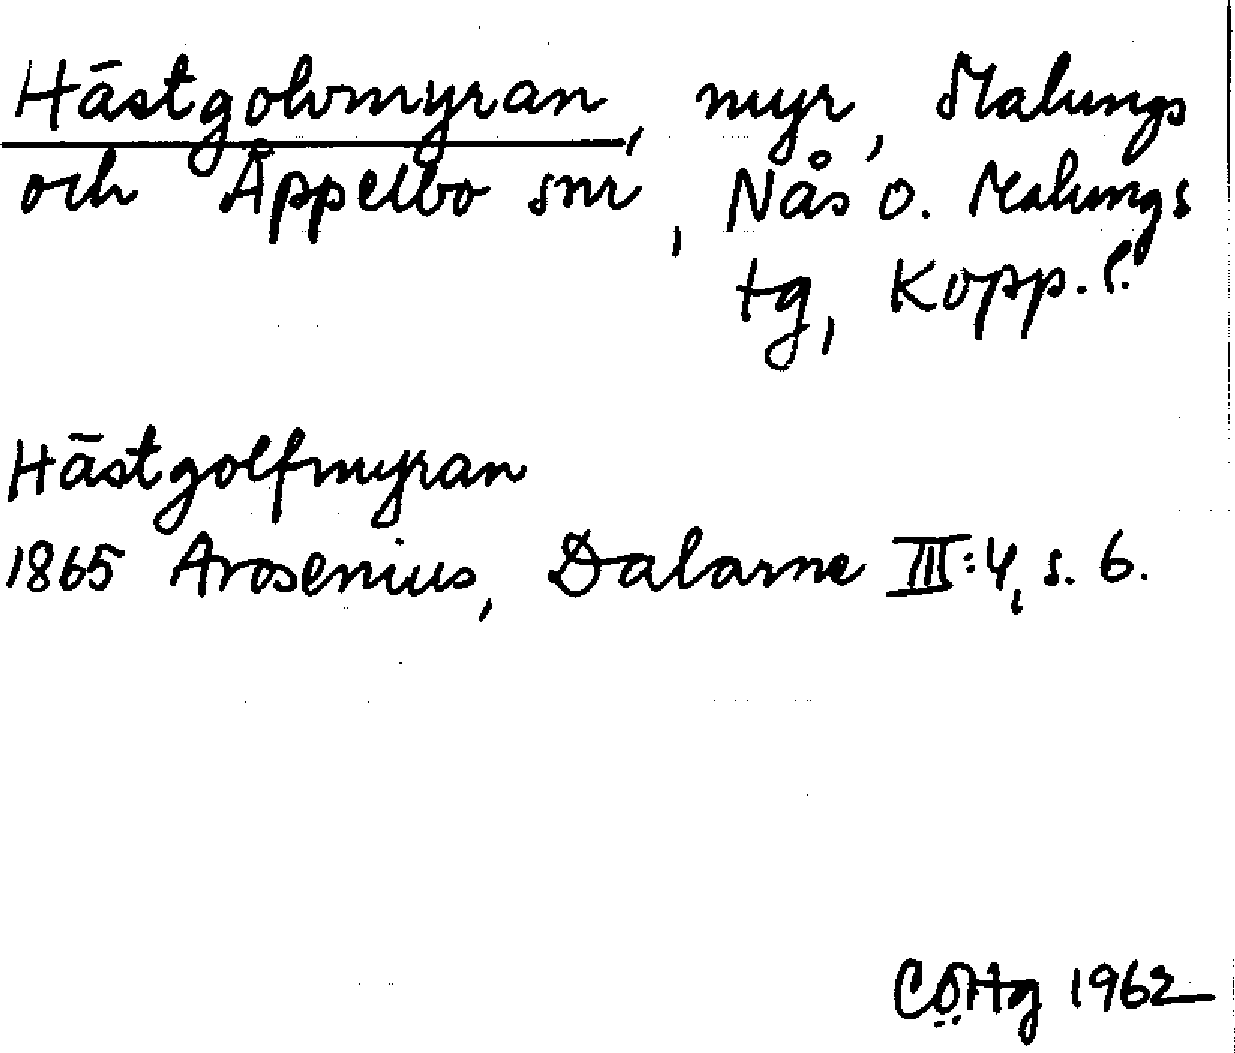 Hästgolvmyran, myr, Malungs
och Äppelbo snr, Nås o. Malungs
tg, Kopp. l.
Hästgolfmyran
1865 Arosenius, Dalarne III:4, s. 6.
1962